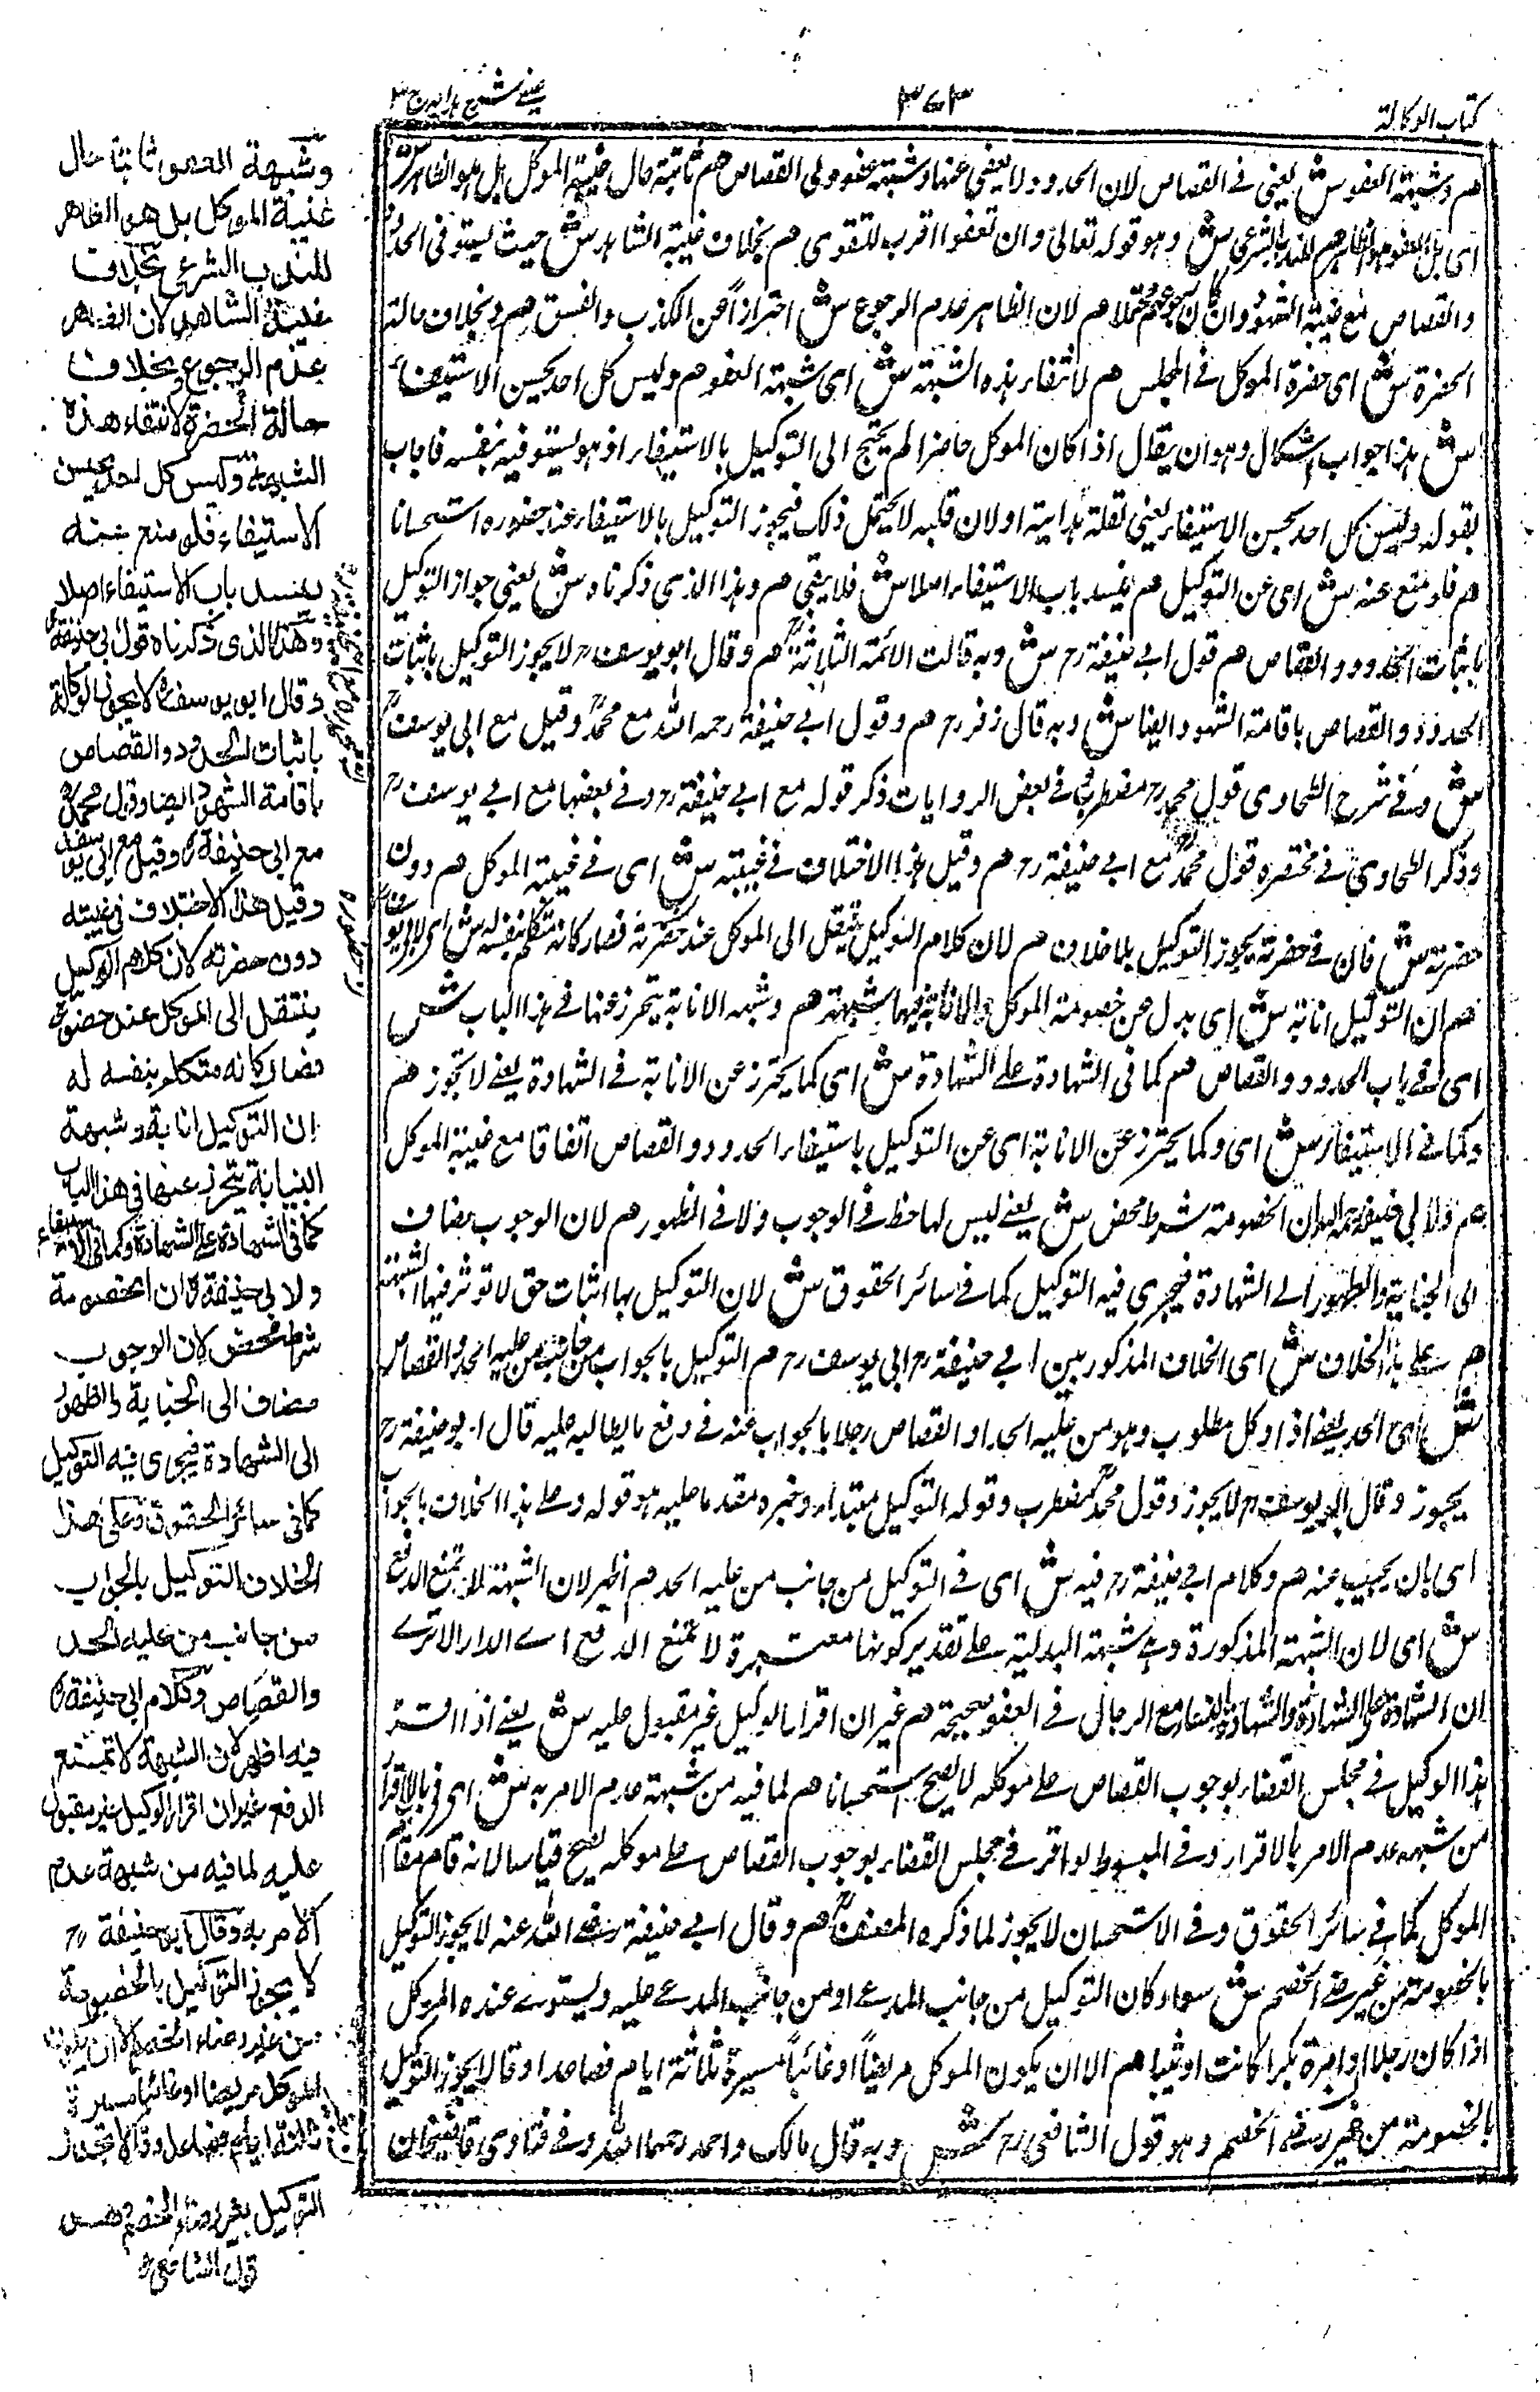 كتاب الوكالة
٣٧٣
عيني شرح هدايه ج ٣
هم وشبهة العفو ش يعني في القصاص لان الحدود لا يعفى عنها وشبهة عفو ولي القصاص هم ثابتة حال غيبة الموكل بل هو الظاهر ش
اى بل العفو هو الظاهر هم للندب الشرعي ش وهو قوله تعالى وان تعفوا اقرب للتقوى هم بخلاف غيبة الشاهد ش حيث يستوفى الحد
والقصاص مع غيبة الشهود وان كان رجوعهم محتملا هم لان الظاهر عدم الرجوع ش احترازا عن الكذب والفسق هم وبخلاف حالة
الحضرة ش اى حضرة الموكل في المجلس هم لانتفاء هذه الشبهة ش اى شبهة العفو هم وليس كل احد يحسن الاستيفاء
ش هذا جواب اشكال وهو ان يقال اذا كان الموكل حاضرا لم يحتج الى التوكيل بالاستيفاء اذ هو يستوفيه بنفسه فاجاب
بقوله وليس كل احد يحسن الاستيفاء يعني لقلة هدايته او لان قلبه لا يحتمل ذلك فيجوز التوكيل بالاستيفاء عند حضوره استحسانا
هم فلو منع عنه ش اى عن التوكيل هم ينسد باب الاستيفاء اصلا ش فلا يبقى هم وهذا الذي ذكرناه ش يعني جواز التوكيل
باثبات الحدود والقصاص هم قول ابي حنيفة رح ش وبه قالت الائمة الثلاثة هم وقال ابو يوسف رح لا يجوز التوكيل باثبات
الحدود والقصاص باقامة الشهود ايضا ش وبه قال زفر رح هم وقول ابي حنيفة رحمه الله مع محمد وقيل مع ابي يوسف
ش وفي شرح الطحاوى قول محمد رح مضطرب في بعض الروايات ذكر قوله مع ابي حنيفة رح وفي بعضها مع ابي يوسف رح
وذكر الطحاوي في مختصره قول محمد مع ابي حنيفة رح هم وقيل هذا الاختلاف في غيبته ش اى في غيبة الموكل هم دون
حضرته ش فان في حضرته يجوز التوكيل بلا خلاف هم لان كلام الوكيل ينتقل الى الموكل عند حضرته فصار كانه متكلم بنفسه له ش اى لابي يوسف
هم ان التوكيل انابة ش اى بدل عن خصومة الموكل والانابة فيها شبهة هم وشبهة الانابة يتحرز عنها في هذا الباب ش
اى في باب الحدود والقصاص هم كما في الشهادة على الشهادة ش اى كما يحترز عن الانابة في الشهادة يعني لا تجوز هم
وكما في الاستيفاء ش اى وكما يحترز عن الانابة اى عن التوكيل باستيفاء الحدود والقصاص اتفاقا مع غيبة الموكل
هم ولابي حنيفة رحمه الله ان الخصومة شرط محض ش يعني ليس لها حظ في الوجوب ولا في الظهور هم لان الوجوب مضاف
الى الجناية والظهور الى الشهادة فيجرى فيه التوكيل كما في سائر الحقوق ش لان التوكيل بها اثبات حق لا تؤثر فيها الشبهة
هم وعلى هذا الخلاف ش اى الخلاف المذكور بين ابي حنيفة رح ابي يوسف رح هم التوكيل بالجواب من جانب من عليه الحد والقصاص
ش اى الحد يعني اذا وكل مطلوب وهو من عليه الحد او القصاص رجلا بالجواب عنه في دفع ما يطالبه عليه قال ابو حنيفة رح
يجوز وقال ابو يوسف رح لا يجوز وقول محمد مضطرب وقوله التوكيل مبتدأ وخبره مقدما عليه هو قوله وعلى هذا الخلاف بالجواب
اى بان يجيب عنه هم وكلام ابي حنيفة رح فيه ش اى في التوكيل من جانب من عليه الحد هم اظهر لان الشبهة لا تمنع الدفع
ش اى لان الشبهة المذكورة وهي شبهة البدلية على تقدير كونها معتبرة لا تمنع الدفع اے الدار الا ترے
ان الشهادة على الشهادة والشهادة النساء مع الرجال في العفو صحيحة هم غير ان اقرار الوكيل غير مقبول عليه ش يعني اذا اقر
هذا الوكيل في مجلس القضاء بوجوب القصاص على موكله لا يصح استحسانا هم لما فيه من شبهة عدم الامر به ش اى في بالاقرار
من شبهة عدم الامر بالاقرار وفي المبسوط لو اقر في مجلس القضاء بوجوب القصاص على موكله يصح قياسا لانه قام مقام
الموكل كما في سائر الحقوق وفي الاستحسان لا يجوز لما ذكره المصنف هم وقال ابي حنيفة رضي الله عنه لا يجوز التوكيل
بالخصومة من غير رضى الخصم ش سواء كان التوكيل من جانب المدعے او من جانب المدعے عليه ويستوے عنده الموكل
اذا كان رجلا او امرة بكرا كانت او ثيبا هم الا ان يكون الموكل مريضا او غائبا مسيرة ثلاثة ايام فصاعدا وقالا يجوز التوكيل
بالخصومة من غير رضے الخصم وهو قول الشافعي رح ش وبه قال مالك واحمد رحمهما الله وفي فتاوى قاضيخان
وشبهة العفو ثابتة حال
غيبة الموكل بل هو الظاهر
للندب الشرعي بخلاف
غيبة الشاهد لان الظاهر
عدم الرجوع وبخلاف
حالة الحضرة لانتفاء هذه
الشبهة وليس كل احد يحسن
الاستيفاء فلو منع عنه
ينسد باب الاستيفاء اصلا
وهذا الذى ذكرناه قول ابي حنيفة
وقال ابو يوسف لا يجوز الوكالة
باثبات الحدود والقصاص
باقامة الشهود ايضا وقول محمد
مع ابي حنيفة وقيل مع ابي يوسف
وقيل هذا الاختلاف في غيبته
دون حضرته لان كلام الوكيل
ينتقل الى الموكل عند حضوره
فصار كانه متكلم بنفسه له
ان التوكيل انابة وشبهة
النيابة يتحرز عنها في هذا الباب
كما في الشهادة على الشهادة وكما في الاستيفاء
ولابي حنيفة ان الخصومة
شرط محض لان الوجوب
مضاف الى الجناية والظهور
الى الشهادة فيجرى فيه التوكيل
كما في سائر الحقوق وعلى هذا
الخلاف التوكيل بالجواب
من جانب من عليه الحد
والقصاص وكلام ابي حنيفة
فيه اظهر لان الشبهة لا تمنع
الدفع غير ان اقرار الوكيل غير مقبول
عليه لما فيه من شبهة عدم
الامر به وقال ابو حنيفة رح
لا يجوز التوكيل بالخصومة
من غير رضاء الخصم الا ان يكون
الموكل مريضا او غائبا مسيرة
ثلثة ايام فصاعدا وقالا يجوز
التوكيل بغير رضاء الخصم وهو
قول الشافعي